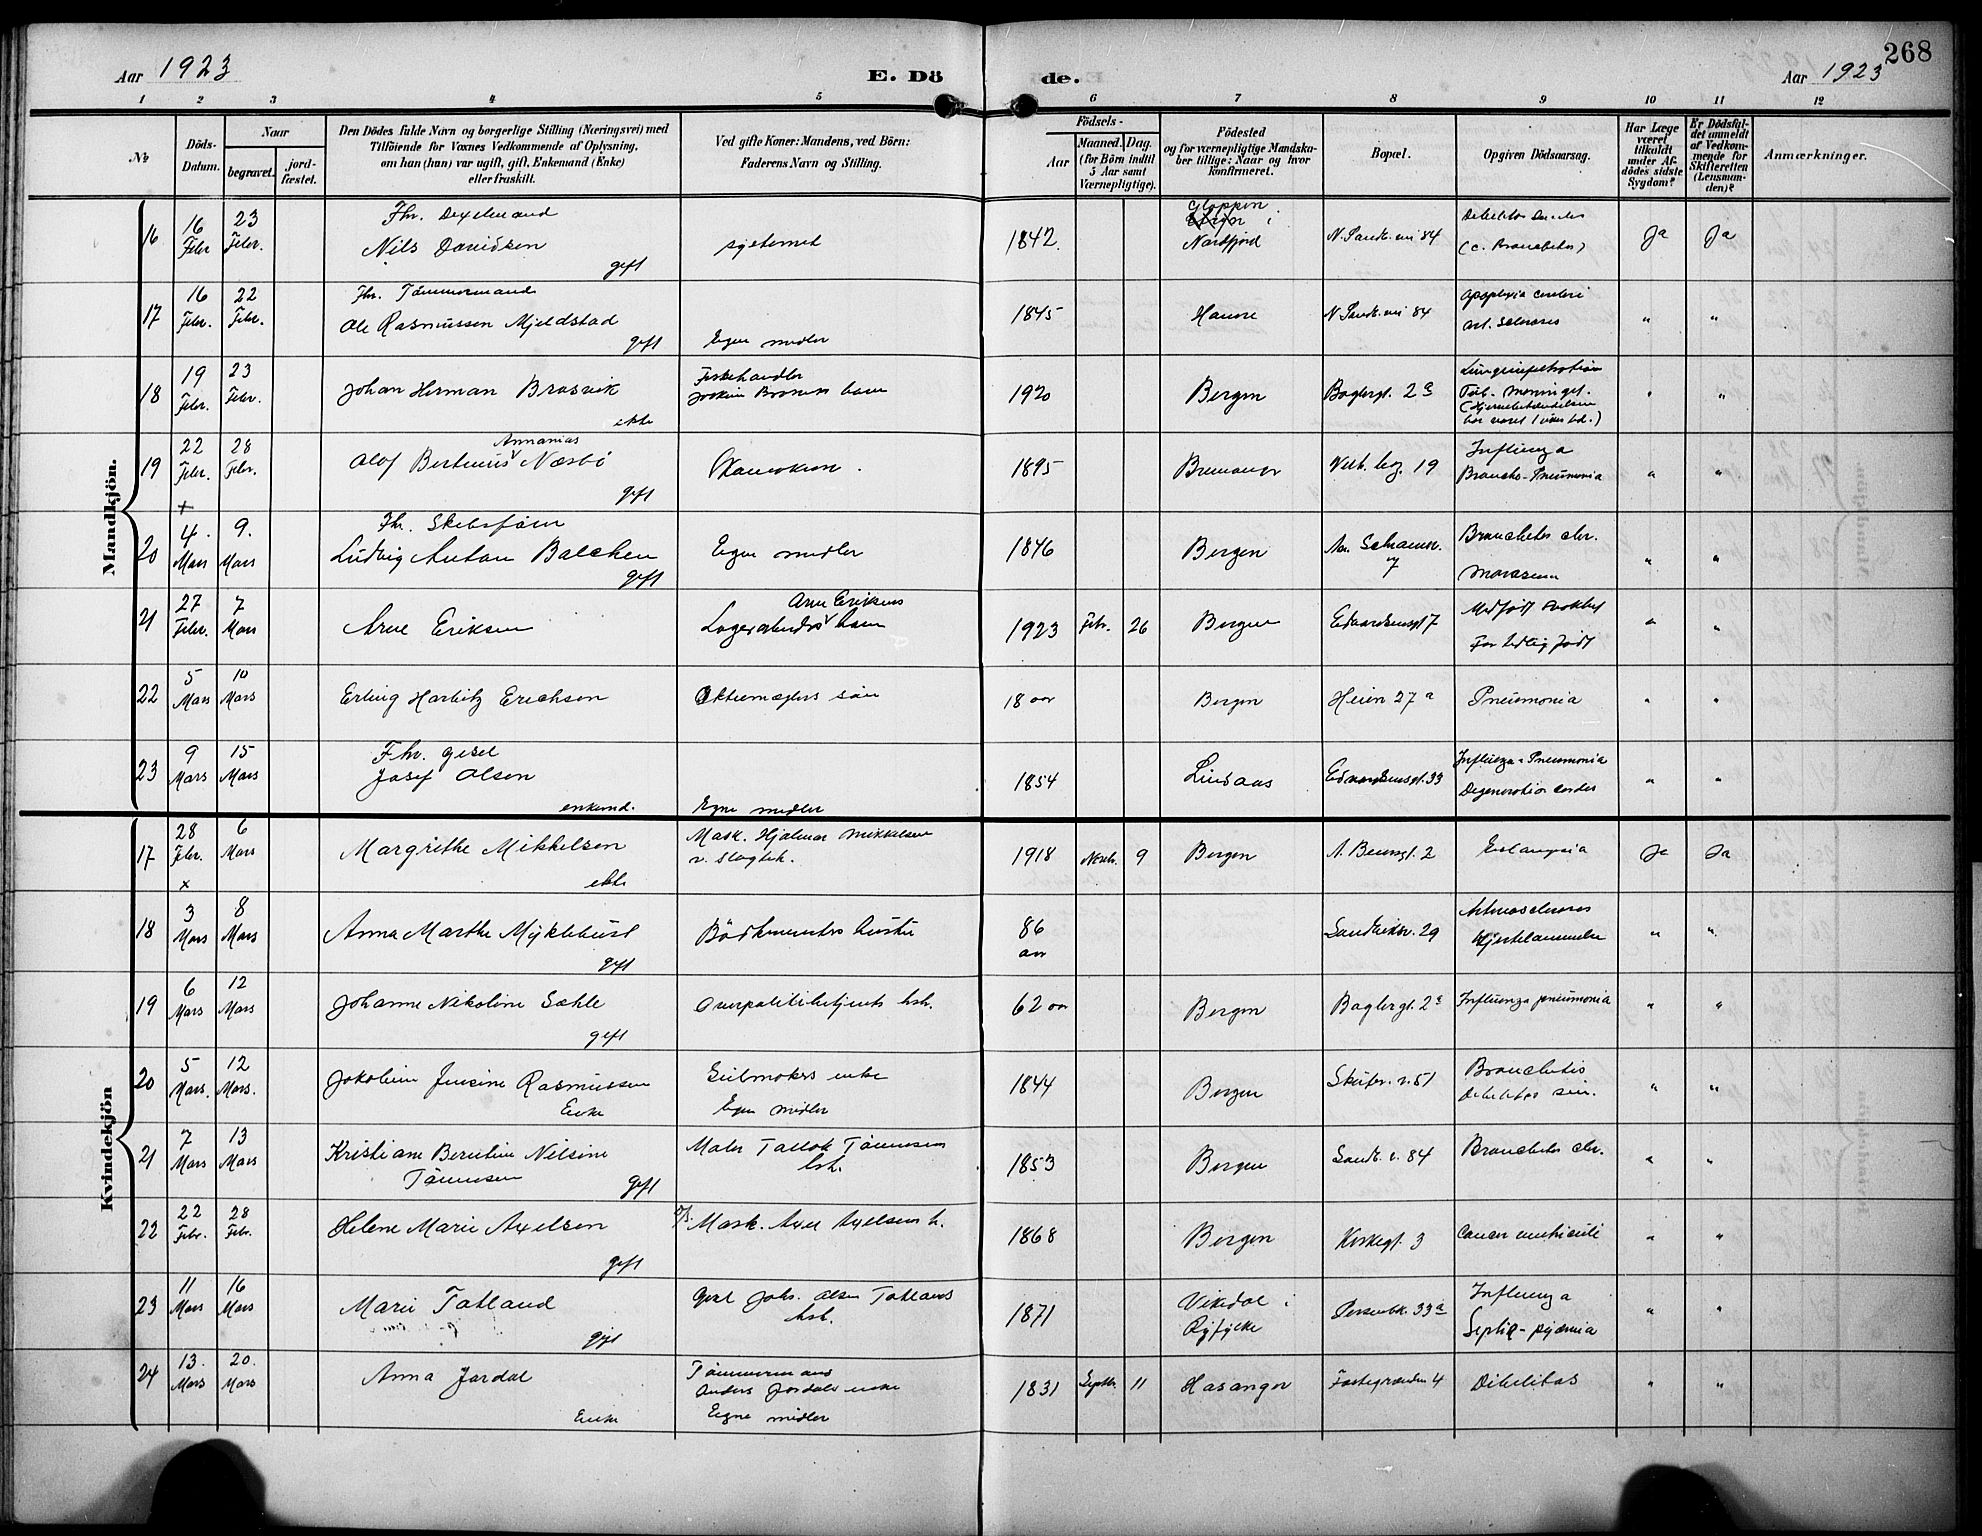 Aar 1923
E. Dö
de.
Aar 1923
268
1 2 3 4 5 6 7 8 9 10 11 12
No
Döds-Datum.
Naar
begravet.
jord-fæstet.
Den Dödes fulde Navn og borgerlige Stilling (Næringsvei) med
Tilföiende for Voxnes Vedkommende af Oplysning,
om han (hun) var ugift, gift, Enkemand (Enke)
eller fraskilt.
Ved gifte Koner: Mandens, ved Börn:
Faderens Navn og Stilling.
Födsels-
Aar
Maaned. Dag.
(for Börn indtil
5 Aar samt
Værnepligtige).
Födested
og for værnepligtige Mandska-
ber tillige: Naar og hvor
konfirmeret.
Bopæl.
Opgiven Dödsaarsag.
Har Læge
været
tilkaldt
under Af-
dödes sidste
Sygdom?
Er Dödsfal-
det anmeldt
af Vedkom-
mende for
Skifteretten
(Lensman-
den)?
Anmærkninger.
Mandkjön.
16 16 Febr. 23 Febr. Fhv. Dexelmand
Nils Davidsen
gift
systemet 1842. Gloppen i
Nordfjord N. Sandv. vei 84 Debilitas cordis
(c. Bronchitis) Ja Ja
17 16 Febr. 22 Febr. Fhv. Tömmermand
Ole Rasmussen Mjeldstad
gift
Egne midler 1845 Hamre N. Sandv. vei 84 Apoplexia cerebri
art. sclerosis " "
18 19 Febr. 23 Febr. Johan Herman Brosvik
ekte
Fiskehandler
Joakim Brosviks barn 1920 Bergen Baglergt. 2a
Tub. meninget. " "
19 22 Febr. 28 Febr. Annanias
Olof Bertinius Næsbö
gift
1895 Bremanger 19 Influenza
Broncho-Pneumonia " "
+
20 4 Mars 9. Mars Fhv. Skibsförer
Ludvig Anton Balchen
gift
Egne midler 1846 Bergen 7 Bronchitis chr.
Marasmus " "
21 27 Febr. 7 Mars Arne Eriksen Arne Eriksens
Lagerarbeiders barn 1923 Febr. 26 Bergen Edvardsensgt 7 Medfödt svakhet
For tidlig födt " "
22 5 Mars 10 Mars Erling Harbitz Erichsen Aktiemæglers sön 18 aar Bergen Heien 27a Pneumonia " "
23 9 Mars 15 Mars Fhv. gesel
Josef Olsen
enkemd.
Egne midler 1854 Lindaas Edvardsensgt. 33 Influenza-Pneumonia
Degeneratio cordis " "
Kvindekjön
17 28 Febr. 6 Mars Margrethe Mikkelsen
ekte
Mask. Hjalmar Mikkelsen
v. Slagteh. 1918 Novb. 9 Bergen N. Beensgt. 2 Eclampsia Ja Ja
x
18 3 Mars 8 Mars Anna Marthe Myklebust
gift
Bödkermesters hustru 86
aar Sandviksv. 29 Arteriosclerosis
Hjertelammelse " "
19 6 Mars 12 Mars Johanne Nikoline Sæhle
gift
Overpolitibetjents hst. 62 aar Bergen Baglergt. 2a Influenza pneumonia " "
20 5 Mars. 12 Mars. Jakobine Jensine Rasmussen
Enke
Seilmakers enke
Egne midler 1844 Bergen Skutev. v. 51 Bronchitis
Debilitas sen. " "
21 7 Mars 13 Mars Kristiane Berntine Nilsine
Tönnesen
gift
Maler Tallak Tönnesens
hst. 1853 Bergen Sandv. v. 84 Bronchitis chr. " "
22 22 Febr. 28 Febr. Helene Marie Axelsen
gift
Mask. Axel Axelsens h. 1868 Bergen Kirkegt. 3 Cancer ventriculi " "
23 11 Mars 16 Mars Marie Tatland
gift
Johs. Olsen Tatlands
hst. 1871 Vikedal i
Ryfylke Persenbk. 33a Influenza
Septic-pyæmia " "
24 13. Mars 20. Mars Anna Jordal
Enke
Tömmermand
Anders Jordals enke
Egne midler 1831 Septbr. 11 Hosanger 4 Debilitas " "